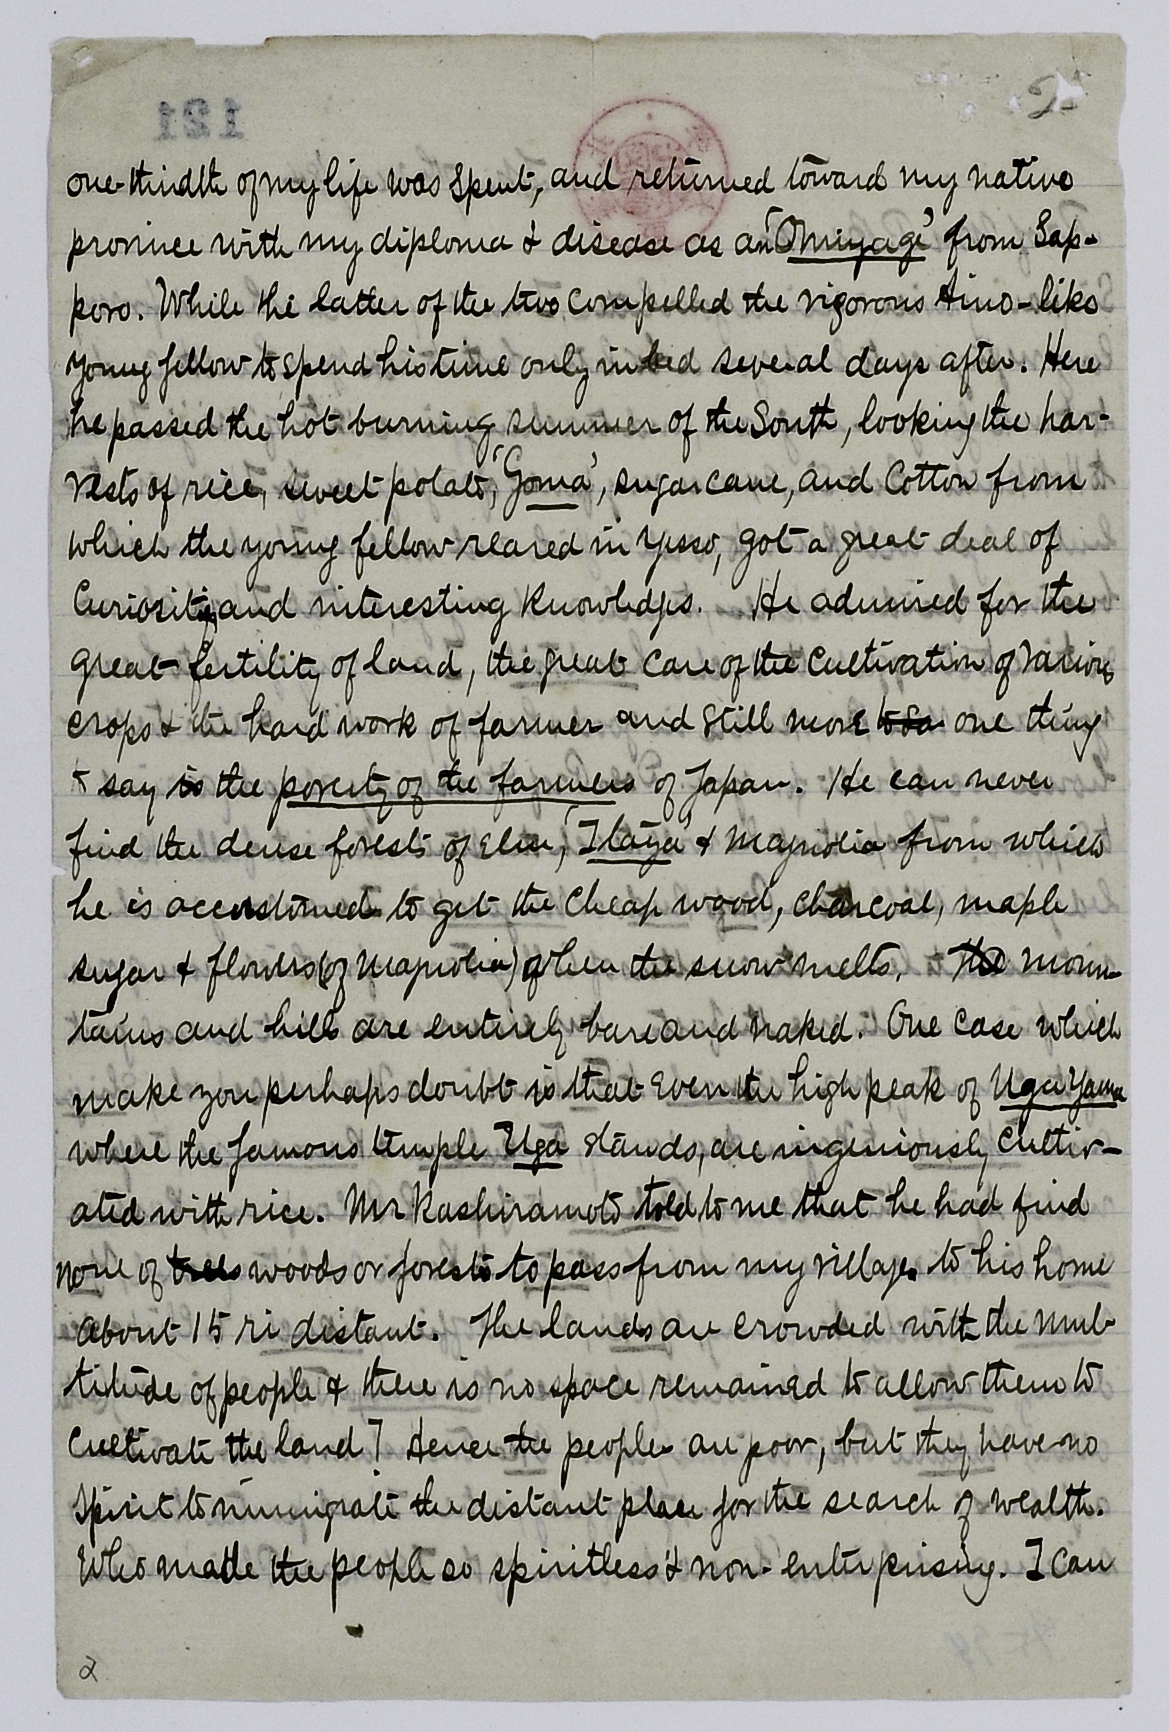 2
121
one-thirdth of my life was spent, and returned toward my native
province with my diploma & disease as an 'Omiyage' from Sap-
poro. While the latter of the two compelled the vigorous Aino-like
young fellow to spend his time only in bed several days after. Here
he passed the hot burning summer of the South, looking the har-
vests of rice, sweet potato, 'Goma', sugarcane, and Cotton from
which the young fellow reared in Yesso, got a great deal of
Curiosity and interesting knowledges. He admired for the
great fertility of land, the great care of the cultivation of various
crops & the hard work of farmer and still more one thing
to say is the poverty of the farmers of Japan. He can never
find the dense forests of Elm, 'Itaya' & Magnolia from which
he is accustomed to get the cheap wood, charcoal, maple
sugar & flowers (of Magnolia) when the snow melts. The moun-
tains and hills are entirely bare and naked. One case which
make you perhaps doubt is that even the high peak of Uga Yama
where the famous temple Uga stands, are ingeniously cultiv-
ated with rice. Mr Kashiramoto told to me that he had find
none of trees woods or forests to pass from my village to his home
about 15 ri distant. The lands are crowded with the mul-
titude of people & there is no space remained to allow them to
cultivate the land] Hence the people are poor, but they have no
spirit to immigrate the distant place for the search of wealth.
Who made the people so spiritless & non-enterprising. I can
2